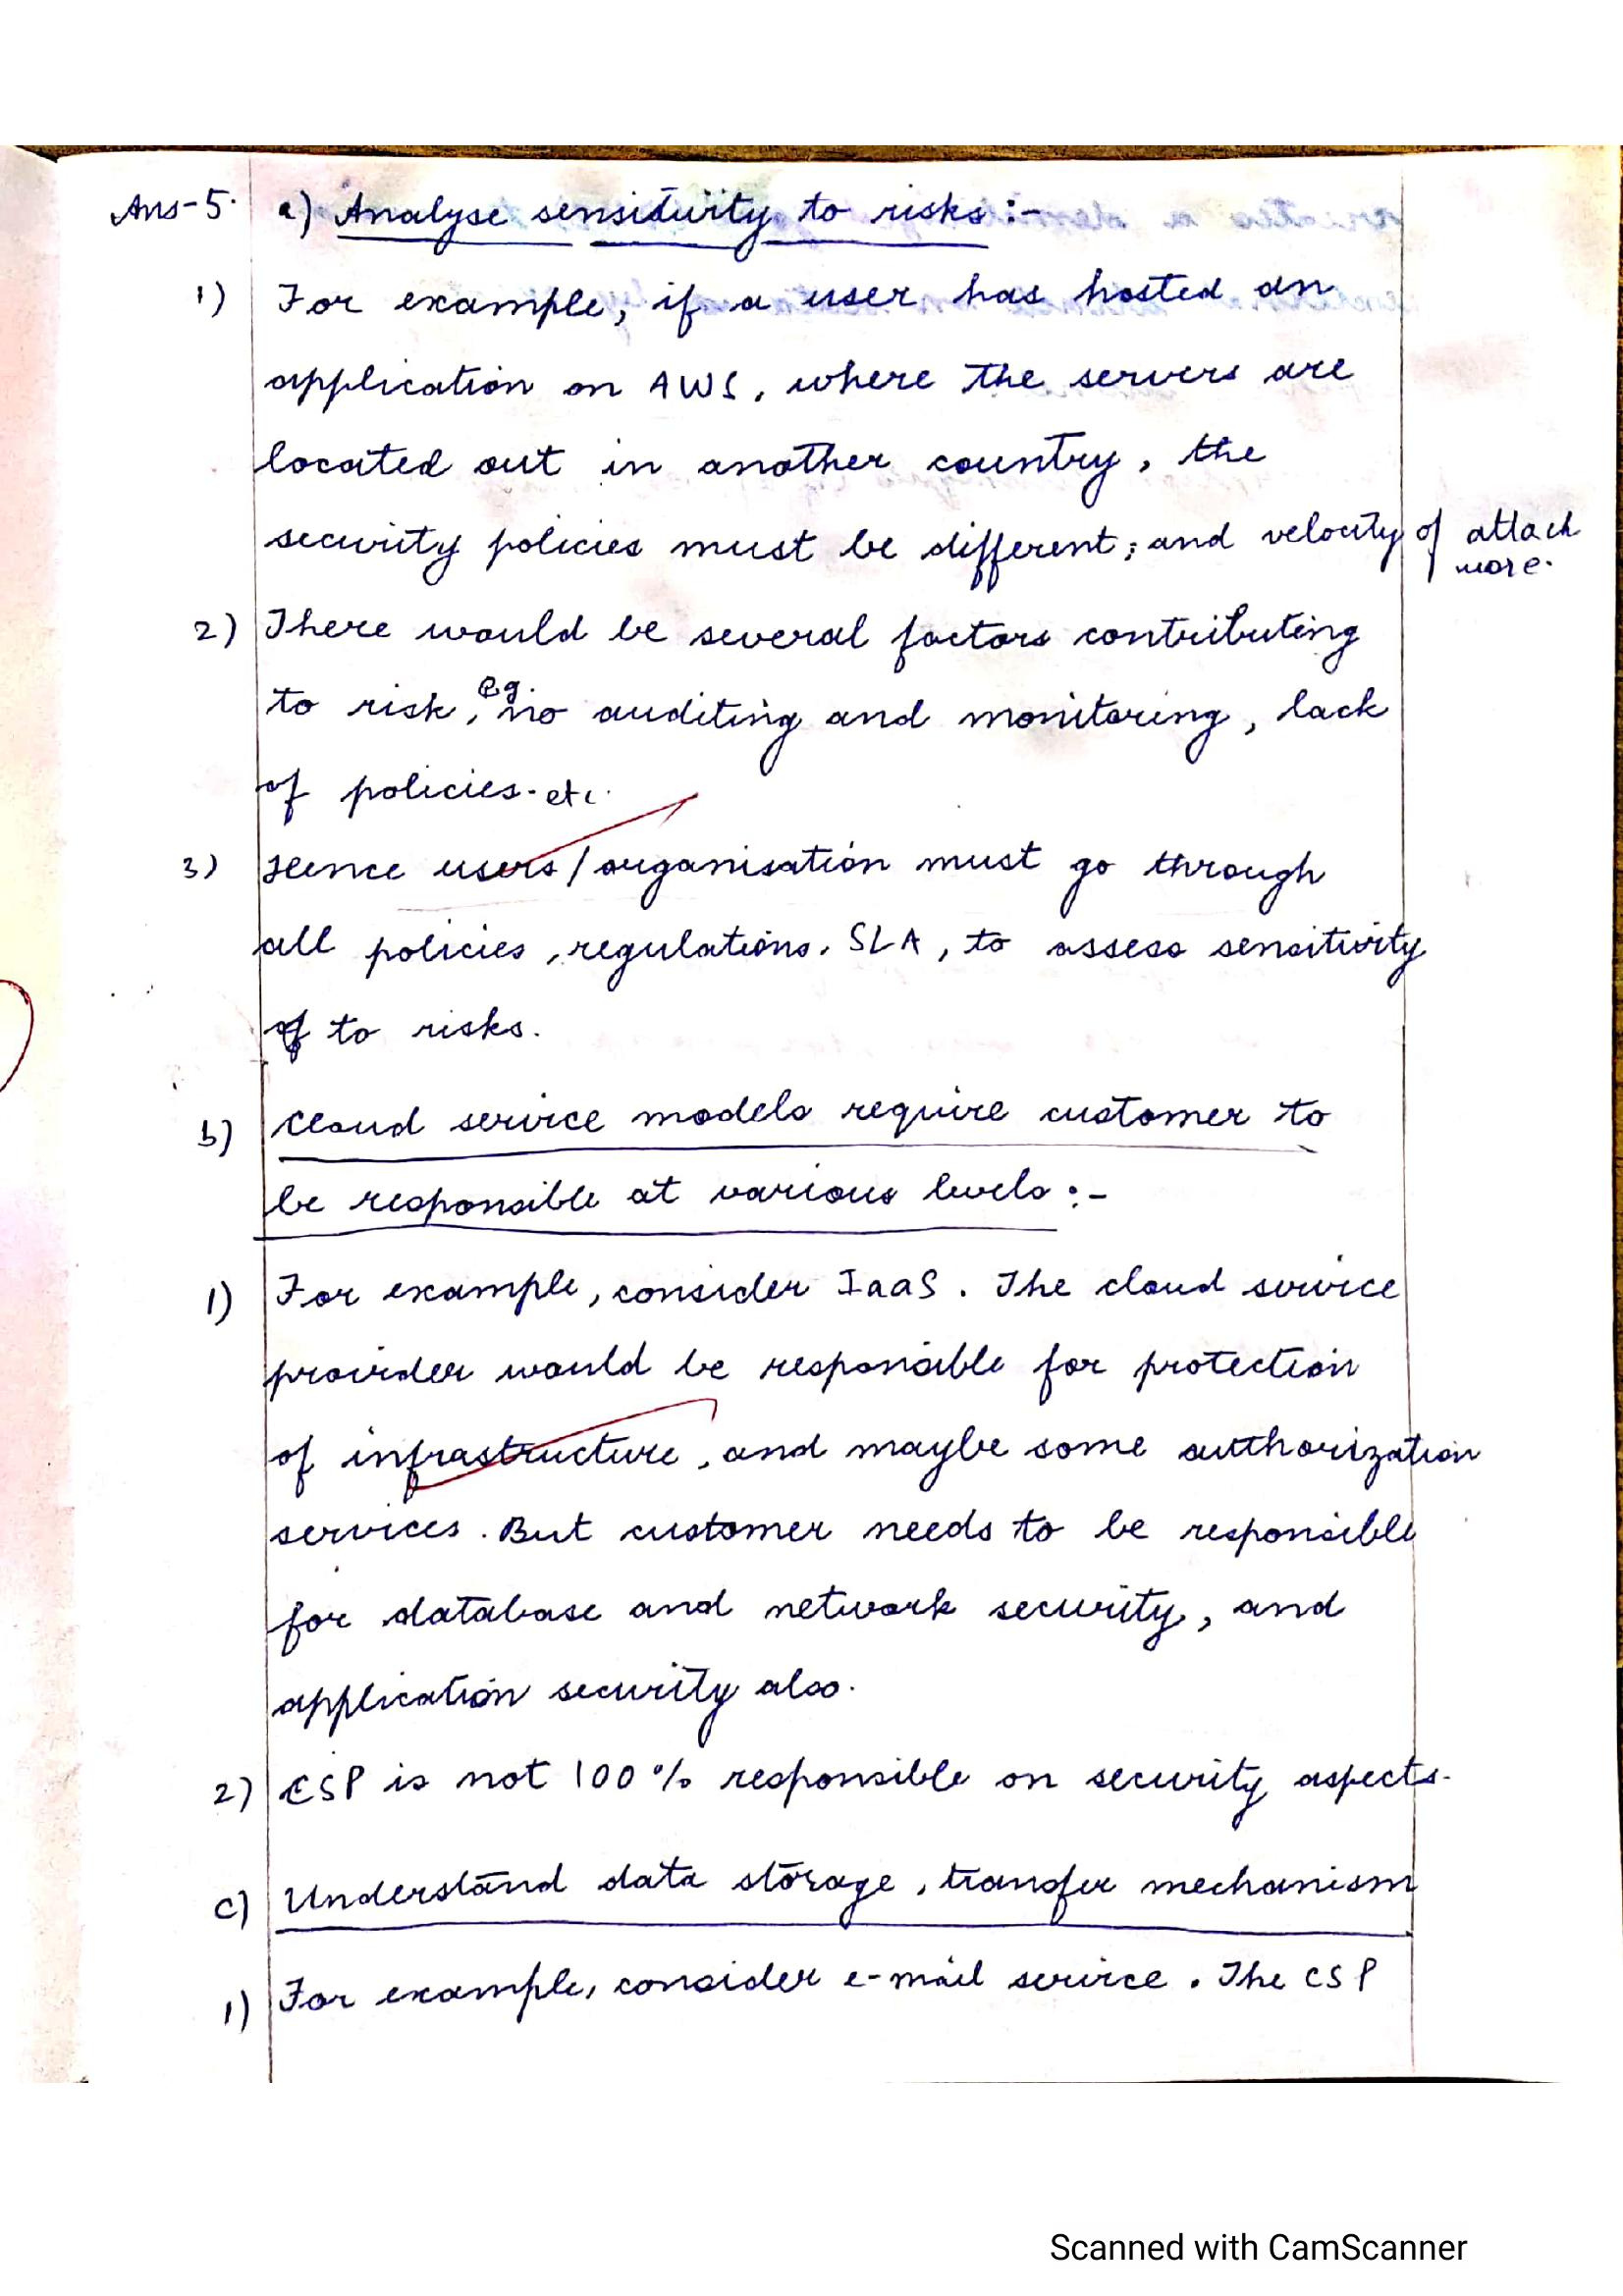 Ans-5. a) Analyse sensitivity to risks :-
1) For example, if a user has hosted an
application on AWS, where the servers are
located out in another country, the
security policies must be different, and velocity of attack
more.
2) There would be several factors contributing
to risk, e.g. no auditing and monitoring, lack
of policies. etc.
3) Hence users/organisation must go through
all policies, regulations, SLA, to assess sensitivity
to risks.
b) Cloud service models require customer to
be responsible at various levels :-
1) For example, consider IaaS. The cloud service
provider would be responsible for protection
of infrastructure, and maybe some authorization
services. But customer needs to be responsible
for database and network security, and
application security also.
2) CSP is not 100% responsible on security aspects.
c) Understand data storage, transfer mechanism
1) For example, consider e-mail service. The CSP
Scanned with CamScanner